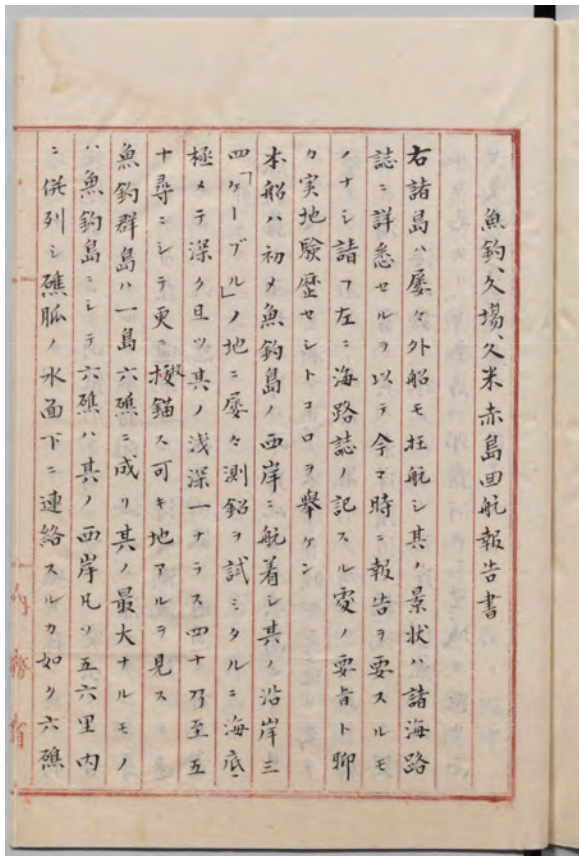 魚釣、久場、久米赤島回航報告書
右諸島ハ屡々外船モ枉航シ其ノ景状ハ諸海路
誌ニ詳悉セルヲ以テ今マ時ニ報告ヲ要スルモ
ノナシ請フ左ニ海路誌ノ記スル処ノ要旨ト聊
カ実地験歴セシトコロヲ挙ケン
本船ハ初メ魚釣島ノ西岸ニ航着シ其ノ沿岸三
四「ケーブル」ノ地ニ屡々測鉛ヲ試ミタルニ海底
極メテ深ク且ツ其ノ浅深一ナラス四十乃至五
十尋ニシテ更ニ投錨ス可キ地アルヲ見ス
魚釣群島ハ一島六礁ニ成リ其ノ最大ナルモノ
ハ魚釣島ニシテ六礁ハ其ノ西岸凡ソ五六里内
ニ併列シ礁脈ノ水面下ニ連絡スルカ如ク六礁
内務省